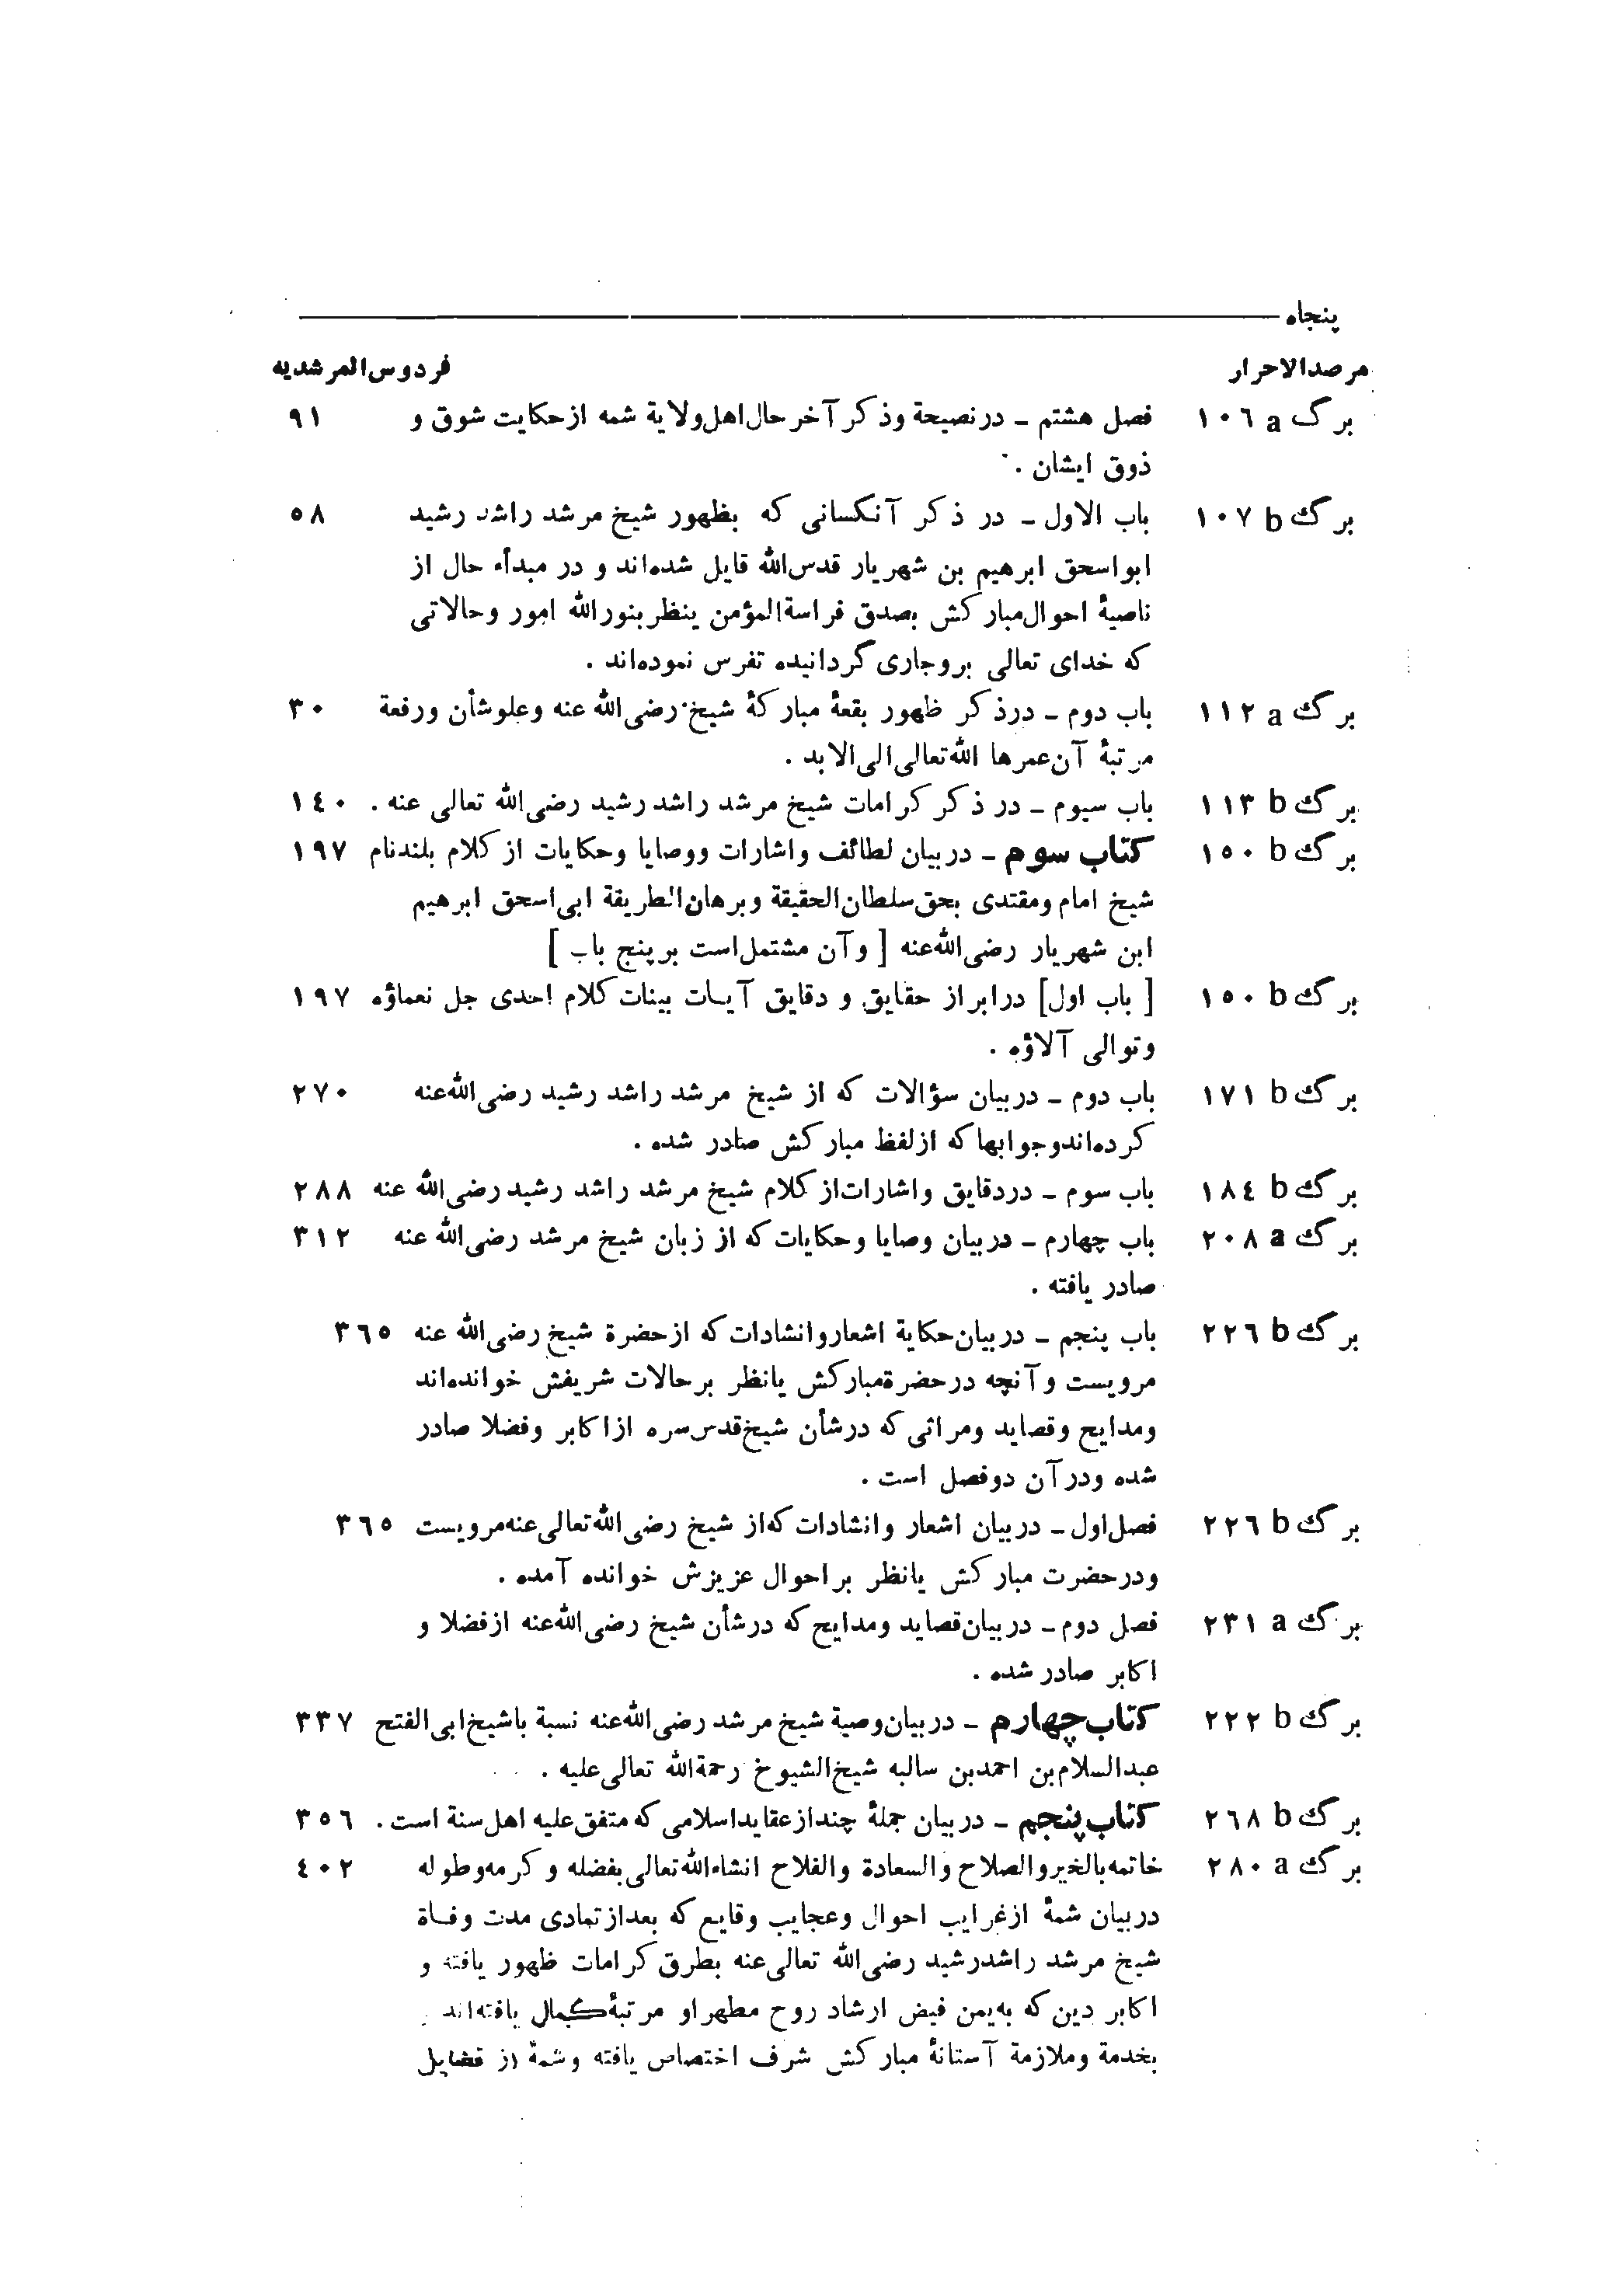 پنجاه
مرصدالاحرار فردوس‌المرشدیه
برگ ١٠٦ a فصل هشتم – درنصیحة وذکر آخر حال‌اهل‌ولایة شمه ازحکایت شوق و ٩١
ذوق ایشان .
برگ ١٠٧ b باب الاول – در ذکر آنکسانی که بظهور شیخ مرشد راشد رشید ٥٨
ابواسحق ابرهیم بن شهریار قدس‌الله قایل شده‌اند و در مبدأء حال از
ناصیهٔ احوال‌مبارکش بصدق فراسةالمؤمن ینظربنورالله امور وحالاتی
که خدای تعالی بروجاری گردانیده تفرس نموده‌اند .
برگ ١١٢ a باب دوم – درذکر ظهور بقعهٔ مبارکهٔ شیخ رضی‌الله عنه وعلوشأن ورفعة ٣٠
مرتبهٔ آن‌عمرها الله‌تعالی‌الی‌الابد .
برگ ١١٣ b باب سیوم – در ذکر کرامات شیخ مرشد راشد رشید رضی‌الله تعالی عنه . ١٤٠
برگ ١٥٠ b کتاب سوم – دربیان لطائف واشارات ووصایا وحکایات از کلام بلندنام ١٩٧
شیخ امام ومقتدی بحق‌سلطان‌الحقیقة وبرهان‌الطریقة ابی‌اسحق ابرهیم
ابن شهریار رضی‌الله‌عنه [ وآن مشتمل‌است برپنج باب ]
برگ ١٥٠ b [ باب اول] درابراز حقایق و دقایق آیات بینات کلام احدی جل نعماؤه ١٩٧
وتوالی آلاؤه .
برگ ١٧١ b باب دوم – دربیان سؤالات که از شیخ مرشد راشد رشید رضی‌الله‌عنه ٢٧٠
کرده‌اندوجوابها که ازلفظ مبارکش صادر شده .
برگ ١٨٤ b باب سوم – دردقایق واشارات‌از کلام شیخ مرشد راشد رشید رضی‌الله عنه ٢٨٨
برگ ٢٠٨ a باب چهارم – دربیان وصایا وحکایات که از زبان شیخ مرشد رضی‌الله عنه ٣١٢
صادر یافته .
برگ ٢٢٦ b باب پنجم – دربیان‌حکایة اشعاروانشادات که ازحضرة شیخ رضی‌الله عنه ٣٦٥
مرویست وآنچه درحضرةمبارکش یانظر برحالات شریفش خوانده‌اند
ومدایح وقصاید ومراثی که درشأن شیخ‌قدس‌سره ازاکابر وفضلا صادر
شده ودرآن دوفصل است .
برگ ٢٢٦ b فصل‌اول – دربیان اشعار وانشادات که‌از شیخ رضی‌الله‌تعالی‌عنه‌مرویست ٣٦٥
ودرحضرت مبارکش یانظر براحوال عزیزش خوانده آمده .
برگ ٢٣١ a فصل دوم – دربیان‌قصاید ومدایح که درشأن شیخ رضی‌الله‌عنه ازفضلا و
اکابر صادر شده .
برگ ٢٢٢ b کتاب‌چهارم – دربیان‌وصیة شیخ مرشد رضی‌الله‌عنه نسبة باشیخ‌ابی‌الفتح ٣٣٧
عبدالسلام‌بن احمدبن سالبه شیخ‌الشیوخ رحمةالله تعالی‌علیه .
برگ ٢٦٨ b کتاب‌پنجم – دربیان جملهٔ چندازعقایداسلامی که متفق‌علیه اهل‌سنة است . ٣٥٦
برگ ٢٨٠ a خاتمه‌بالخیروالصلاح والسعادة والفلاح انشاءالله‌تعالی‌بفضله وکرمه‌وطوله ٤٠٢
دربیان شمهٔ ازغرایب احوال وعجایب وقایع که بعدازتمادی مدت وفاة
شیخ مرشد راشدرشید رضی‌الله تعالی‌عنه بطرق کرامات ظهور یافته و
اکابر دین که به‌یمن فیض ارشاد روح مطهراو مرتبهٔ‌کمال یافته‌اند
بخدمة وملازمة آستانهٔ مبارکش شرف اختصاص یافته وشمهٔ از فضایل